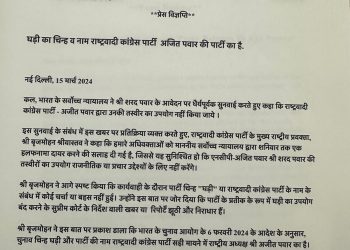 **प्रेस विज्ञप्ति**
घड़ी का चिन्ह व नाम राष्ट्रवादी कांग्रेस पार्टी अजित पवार की पार्टी का है.
नई दिल्ली, 15 मार्च 2024
कल, भारत के सर्वोच्च न्यायालय ने श्री शरद पवार के आवेदन पर धैर्यपूर्वक सुनवाई करते हुए कहा कि राष्ट्रवादी
कांग्रेस पार्टी - अजीत पवार द्वारा उनकी तस्वीर का उपयोग नहीं किया जाये ।
इस सुनवाई के संबंध में इस खबर पर प्रतिक्रिया व्यक्त करते हुए, राष्ट्रवादी कांग्रेस पार्टी के मुख्य राष्ट्रीय प्रवक्ता,
श्री बृजमोहन श्रीवास्तव ने कहा कि हमारे अधिवक्ताओं को माननीय सर्वोच्च न्यायालय द्वारा शनिवार तक एक
हलफनामा दायर करने की सलाह दी गई है, जिससे यह सुनिश्चित हो कि एनसीपी-अजित पवार श्री शरद पवार की
तस्वीरों का उपयोग राजनीतिक या प्रचार उद्देश्यों के लिए नहीं करेंगे।
श्री बृजमोहन ने आगे स्पष्ट किया कि कार्यवाही के दौरान पार्टी चिन्ह "घड़ी" या राष्ट्रवादी कांग्रेस पार्टी के नाम के
संबंध में कोई चर्चा या बहस नहीं हुई। उन्होंने इस बात पर जोर दिया कि पार्टी के प्रतीक के रूप में घड़ी का उपयोग
बंद करने के सुप्रीम कोर्ट के निर्देश वाली खबर या रिपोर्ट झूठी और निराधार हैं।
श्री बृजमोहन ने इस बात पर प्रकाश डाला कि भारत के चुनाव आयोग के 6 फरवरी 2024 के आदेश के अनुसार,
चुनाव चिन्ह घड़ी और पार्टी की नाम राष्ट्रवादी कांग्रेस पार्टी सही मायने में राष्ट्रीय अध्यक्ष श्री अजीत पवार के